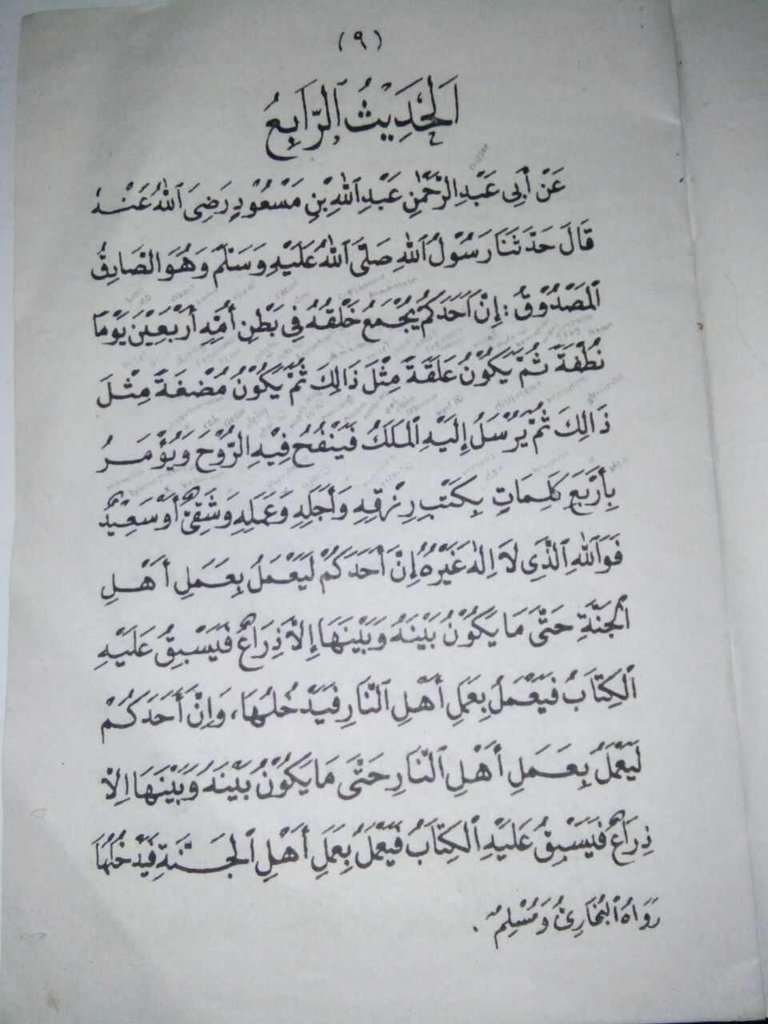 (٩)
اَلْحَدِيْثُ الرَّابِعُ
عَنْ أَبِى عَبْدِ الرَّحْمٰنِ عَبْدِ اللّٰهِ بْنِ مَسْعُوْدٍ رَضِىَ اللّٰهُ عَنْهُ
قَالَ حَدَّثَنَا رَسُوْلُ اللّٰهِ صَلَّى اللّٰهُ عَلَيْهِ وَسَلَّمَ وَهُوَ الصَّادِقُ
الْمَصْدُوْقُ : إِنَّ أَحَدَكُمْ يُجْمَعُ خَلْقُهُ فِى بَطْنِ أُمِّهِ أَرْبَعِيْنَ يَوْمًا
نُطْفَةً ثُمَّ يَكُوْنُ عَلَقَةً مِثْلَ ذَالِكَ ثُمَّ يَكُوْنُ مُضْغَةً مِثْلَ
ذَالِكَ ثُمَّ يُرْسَلُ إِلَيْهِ الْمَلَكُ فَيَنْفُخُ فِيْهِ الرُّوْحَ وَيُؤْمَرُ
بِأَرْبَعِ كَلِمَاتٍ بِكَتْبِ رِزْقِهِ وَأَجَلِهِ وَعَمَلِهِ وَشَقِىٌّ أَوْ سَعِيْدٌ
فَوَاللّٰهِ الَّذِى لَا إِلٰهَ غَيْرُهُ إِنَّ أَحَدَكُمْ لَيَعْمَلُ بِعَمَلِ أَهْلِ
الْجَنَّةِ حَتَّى مَا يَكُوْنُ بَيْنَهُ وَبَيْنَهَا إِلَّا ذِرَاعٌ فَيَسْبِقُ عَلَيْهِ
الْكِتَابُ فَيَعْمَلُ بِعَمَلِ أَهْلِ النَّارِ فَيَدْخُلُهَا، وَإِنَّ أَحَدَكُمْ
لَيَعْمَلُ بِعَمَلِ أَهْلِ النَّارِ حَتَّى مَا يَكُوْنُ بَيْنَهُ وَبَيْنَهَا إِلَّا
ذِرَاعٌ فَيَسْبِقُ عَلَيْهِ الْكِتَابُ فَيَعْمَلُ بِعَمَلِ أَهْلِ الْجَنَّةِ فَيَدْخُلُهَا
رَوَاهُ الْبُخَارِىُّ وَمُسْلِمٌ.